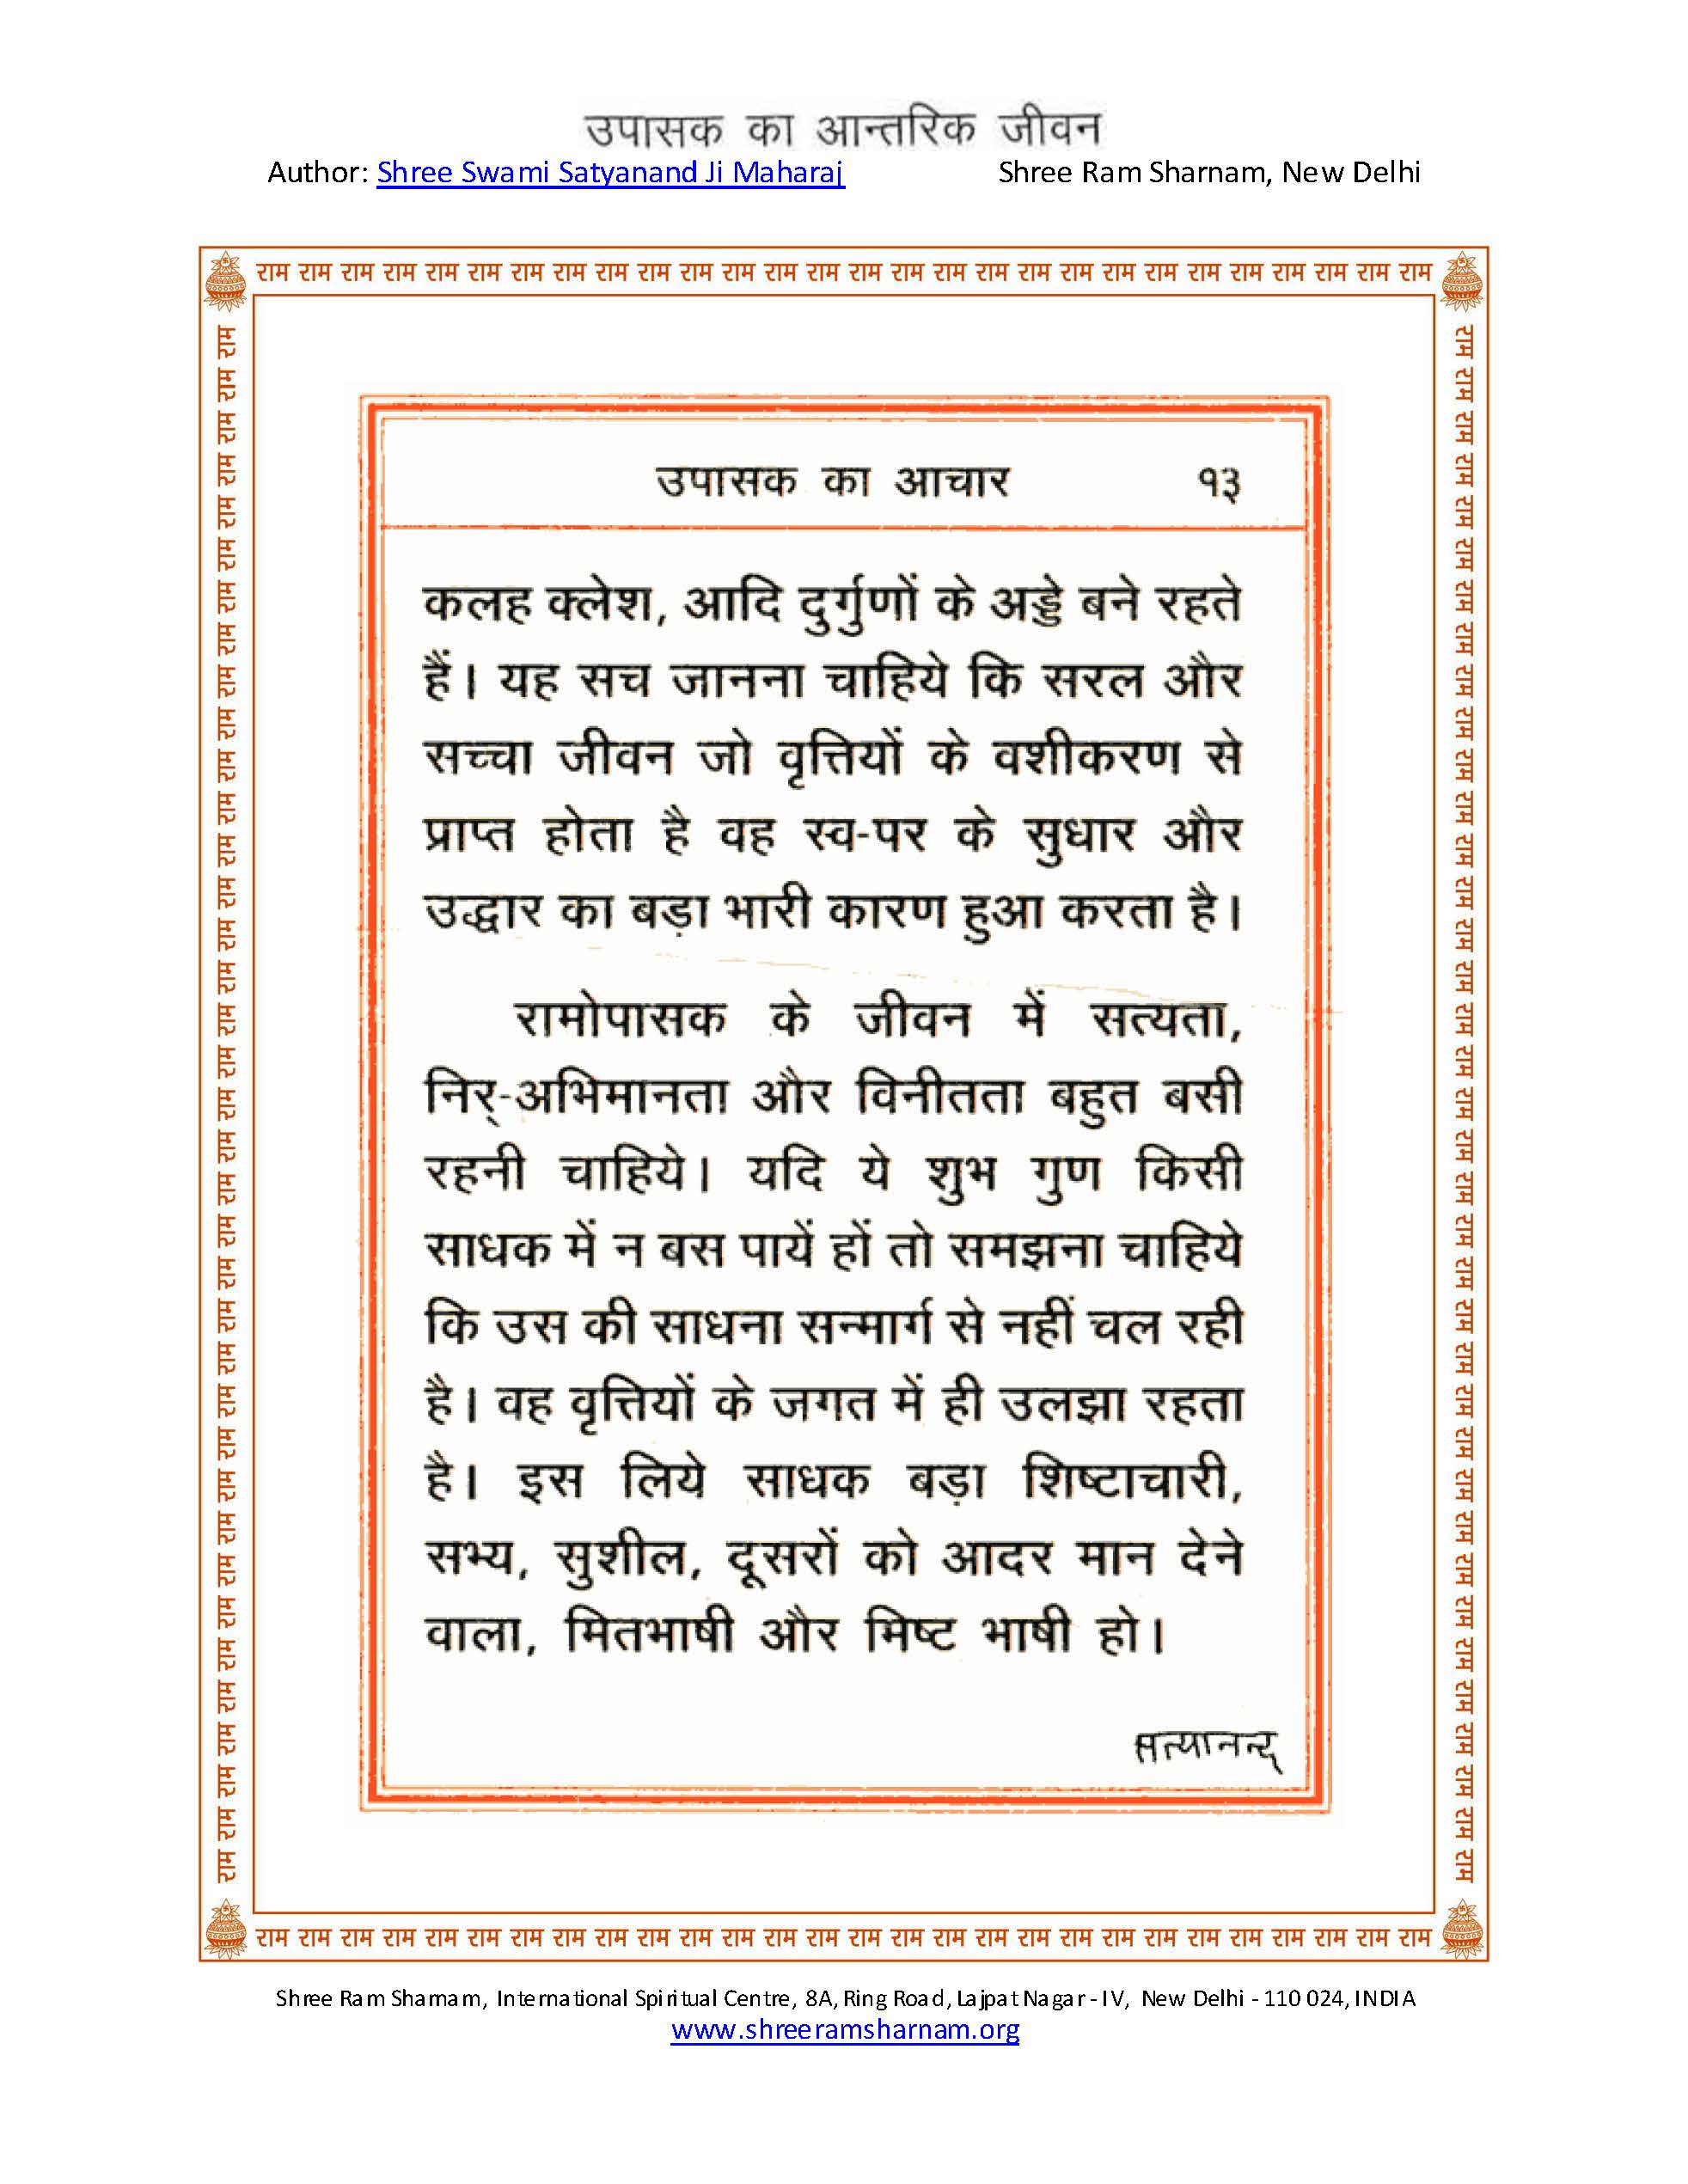 उपासक का आन्तरिक जीवन
Author: Shree Swami Satyanand Ji Maharaj Shree Ram Sharnam, New Delhi
राम राम राम राम राम राम राम राम राम राम राम राम राम राम राम राम राम राम राम राम राम राम राम राम राम राम राम राम
उपासक का आचार १३
कलह क्लेश, आदि दुर्गुणों के अड्डे बने रहते
हैं। यह सच जानना चाहिये कि सरल और
सच्चा जीवन जो वृत्तियों के वशीकरण से
प्राप्त होता है वह स्व-पर के सुधार और
उद्धार का बड़ा भारी कारण हुआ करता है।
रामोपासक के जीवन में सत्यता,
निर्-अभिमानता और विनीतता बहुत बसी
रहनी चाहिये। यदि ये शुभ गुण किसी
साधक में न बस पायें हों तो समझना चाहिये
कि उस की साधना सन्मार्ग से नहीं चल रही
है। वह वृत्तियों के जगत में ही उलझा रहता
है। इस लिये साधक बड़ा शिष्टाचारी,
सभ्य, सुशील, दूसरों को आदर मान देने
वाला, मितभाषी और मिष्ट भाषी हो।
सत्यानन्द्
राम राम राम राम राम राम राम राम राम राम राम राम राम राम राम राम राम राम राम राम राम राम राम राम राम राम राम राम राम राम राम राम राम राम राम राम राम
राम राम राम राम राम राम राम राम राम राम राम राम राम राम राम राम राम राम राम राम राम राम राम राम राम राम राम राम राम राम राम राम राम राम राम राम राम
राम राम राम राम राम राम राम राम राम राम राम राम राम राम राम राम राम राम राम राम राम राम राम राम राम राम राम राम
Shree Ram Sharnam, International Spiritual Centre, 8A, Ring Road, Lajpat Nagar - IV, New Delhi - 110 024, INDIA
www.shreeramsharnam.org